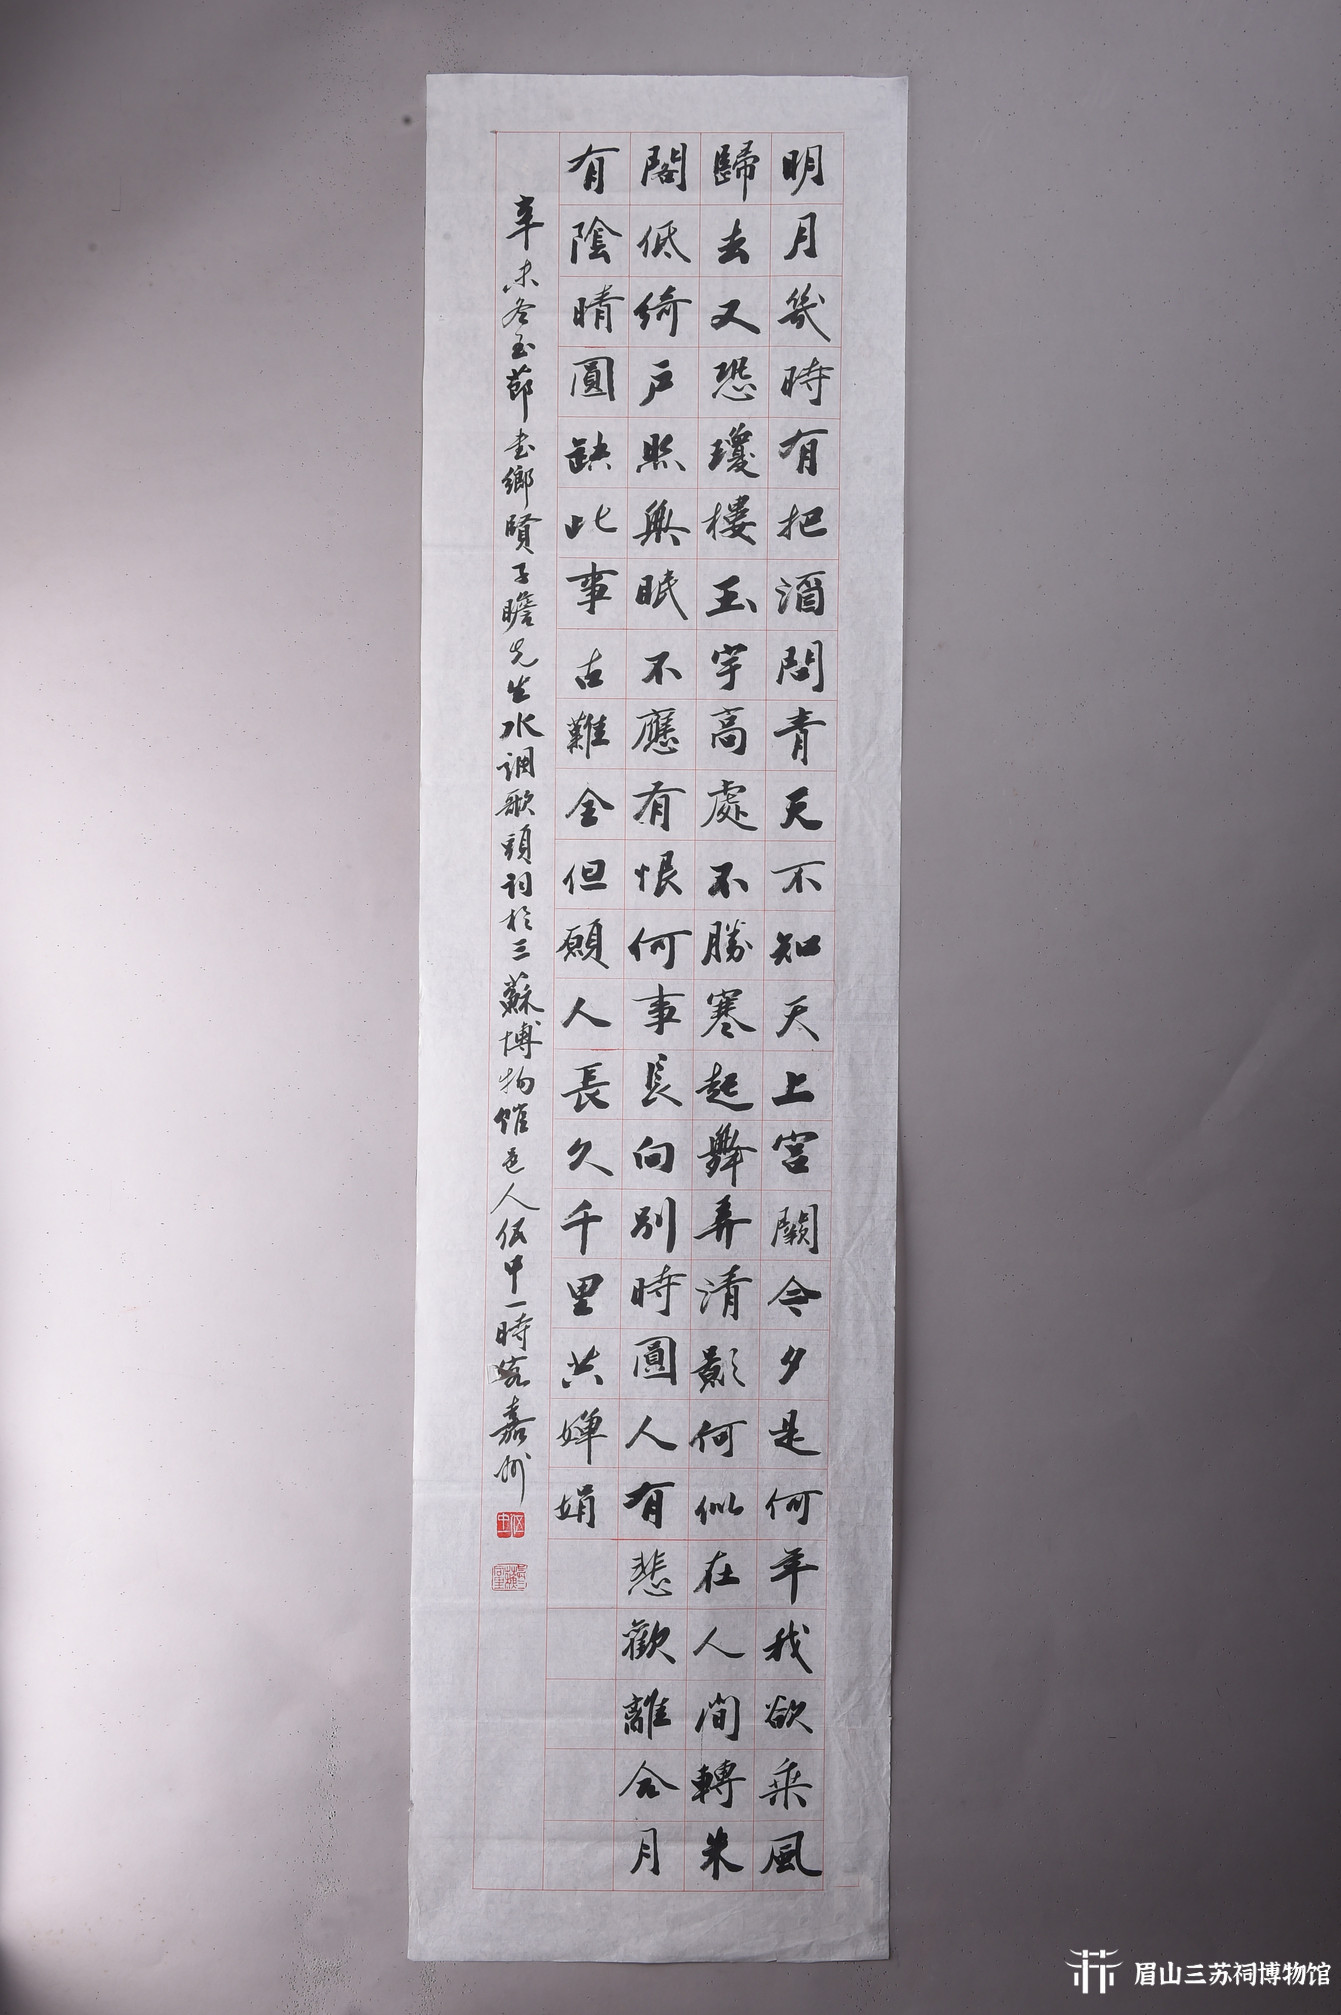 明月幾時有把酒問青天不知天上宮闕今夕是何年我欲乘風
歸去又恐瓊樓玉宇高處不勝寒起舞弄清影何似在人間轉朱
閣低綺戶照無眠不應有恨何事長向別時圓人有悲歡離合月
有陰晴圓缺此事古難全但願人長久千里共嬋娟
辛未冬至節書鄉賢子瞻先生水調歌頭詞於三蘇博物館邑人伍中一時客嘉州
眉山三苏祠博物馆